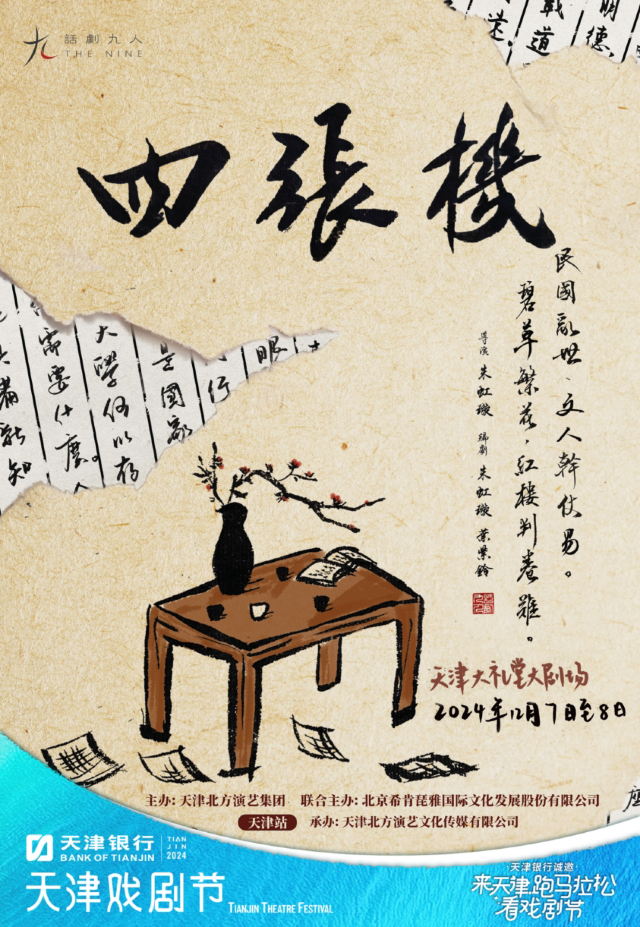 話劇九人
THE NINE
明德
載道
四張機
民國亂世、文人幹仗易。
碧草繁花，紅樓判卷難。
导演 朱虹璇 编剧 朱虹璇 葉紫鈴
眼
行
是國家
大學何以存
需要什麼。人
具備新知
天津大礼堂大剧场
2024年12月7日至8日
主办：天津北方演艺集团 联合主办：北京希肯琵雅国际文化发展股份有限公司
天津站 承办：天津北方演艺文化传媒有限公司
天津银行
BANK OF TIANJIN
TIAN
JIN
2024
天津戏剧节 TIANJIN THEATRE FESTIVAL
天津银行诚邀
来天津跑马拉松
看戏剧节